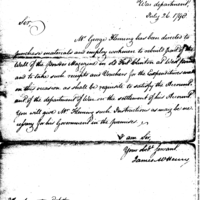 War department,
July 26 1798
Sir,
Mr George Fleming has been directed to
purchase materials and employ workmen to rebuild part of the
Wall of the Powder Magazine in old Fort Clinton at West point
and to take such receipts and Vouchers for the Expenditures made
on this occasion as shall be requisite to satisfy the Accountant
of the department of War on the settlement of his Account.
You will give Mr Fleming such Instructions as may be ne
cessary for his Government in the premises
I am Sir,
Your obdt servant
James McHenry